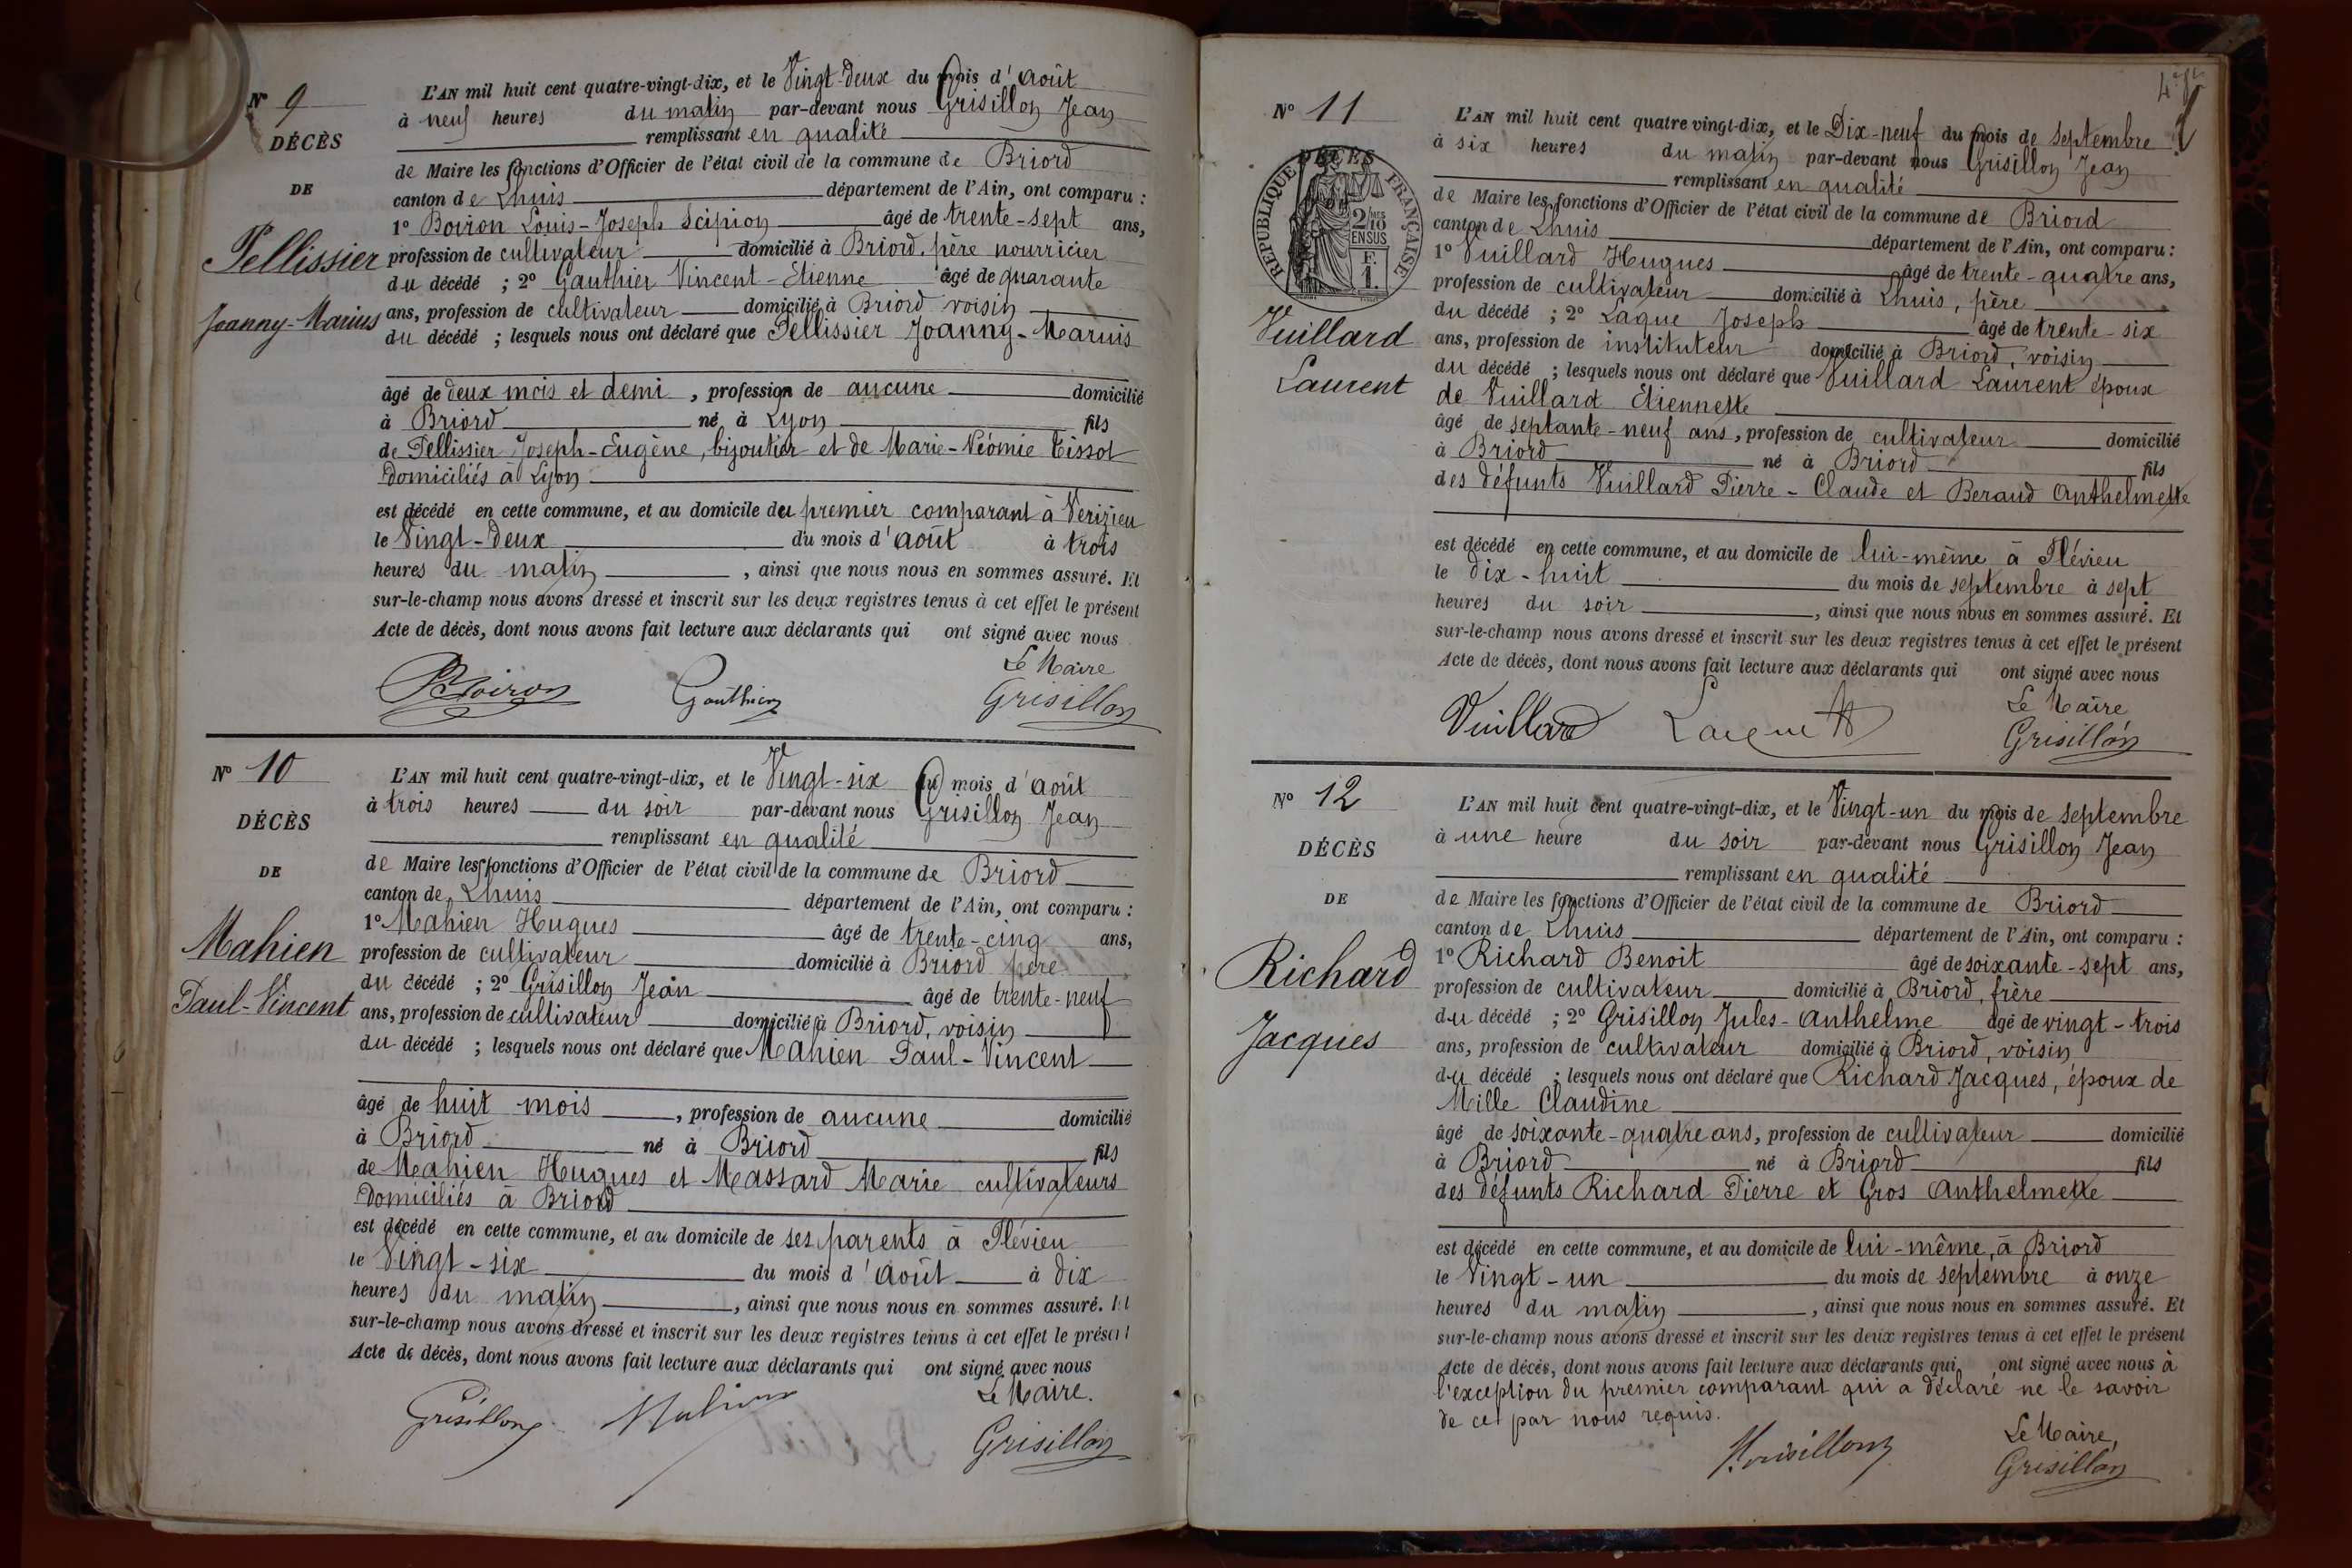 N° 9
DÉCÈS
DE
Pellissier
Joanny-Marius
L'AN mil huit cent quatre-vingt-dix, et le Vingt-deux du mois d'Août
à neuf heures du matin par-devant nous Grisillon Jean
remplissant en qualité
de Maire les fonctions d'Officier de l'état civil de la commune de Briord
canton de Lhuis département de l'Ain, ont comparu :
1° Boiron Louis-Joseph Scipion âgé de trente-sept ans,
profession de cultivateur domicilié à Briord, père nourricier
du décédé ; 2° Gauthier Vincent-Etienne âgé de quarante
ans, profession de cultivateur domicilié à Briord voisin
du décédé ; lesquels nous ont déclaré que Pellissier Joanny-Marius
âgé de deux mois et demi , profession de aucune domicilié
à Briord né à Lyon fils
de Pellissier Joseph-Eugène, bijoutier et de Marie-Néomie Tissot
domiciliés à Lyon
est décédé en cette commune, et au domicile du premier comparant à Verizieu
le Vingt-deux du mois d'août à trois
heures du matin , ainsi que nous nous en sommes assuré. Et
sur-le-champ nous avons dressé et inscrit sur les deux registres tenus à cet effet le présent
Acte de décès, dont nous avons fait lecture aux déclarants qui ont signé avec nous
Le Maire
Boiron Gauthier Grisillon
N° 10
DÉCÈS
DE
Mahien
Paul-Vincent
L'AN mil huit cent quatre-vingt-dix, et le Vingt-six du mois d'août
à trois heures du soir par-devant nous Grisillon Jean
remplissant en qualité
de Maire les fonctions d'Officier de l'état civil de la commune de Briord
canton de Lhuis département de l'Ain, ont comparu :
1° Mahien Hugues âgé de trente-cinq ans,
profession de cultivateur domicilié à Briord père
du décédé ; 2° Grisillon Jean âgé de trente-neuf
ans, profession de cultivateur domicilié à Briord, voisin
du décédé ; lesquels nous ont déclaré que Mahien Paul-Vincent
âgé de huit mois , profession de aucune domicilié
à Briord né à Briord fils
de Mahien Hugues et Massard Marie cultivateurs
domiciliés à Briord
est décédé en cette commune, et au domicile de ses parents à Flévieu
le Vingt-six du mois d'Août à dix
heures du matin , ainsi que nous nous en sommes assuré. Et
sur-le-champ nous avons dressé et inscrit sur les deux registres tenus à cet effet le présent
Acte de décès, dont nous avons fait lecture aux déclarants qui ont signé avec nous
Le Maire.
Grisillon Mahien Grisillon
N° 11
DÉCÈS
RÉPUBLIQUE FRANÇAISE
2/10 EN SUS
F. 1.
Vuillard
Laurent
L'AN mil huit cent quatre vingt-dix, et le Dix-neuf du mois de septembre
à six heures du matin par-devant nous Grisillon Jean
remplissant en qualité
de Maire les fonctions d'Officier de l'état civil de la commune de Briord
canton de Lhuis département de l'Ain, ont comparu :
1° Vuillard Hugues âgé de trente-quatre ans,
profession de cultivateur domicilié à Lhuis, père
du décédé ; 2° Laque Joseph âgé de trente-six
ans, profession de instituteur domicilié à Briord, voisin
du décédé ; lesquels nous ont déclaré que Vuillard Laurent époux
de Vuillard Etiennette
âgé de septante-neuf ans, profession de cultivateur domicilié
à Briord né à Briord fils
des défunts Vuillard Pierre-Claude et Beraud Anthelmette
est décédé en cette commune, et au domicile de lui-même à Flévieu
le dix-huit du mois de septembre à sept
heures du soir , ainsi que nous nous en sommes assuré. Et
sur-le-champ nous avons dressé et inscrit sur les deux registres tenus à cet effet le présent
Acte de décès, dont nous avons fait lecture aux déclarants qui ont signé avec nous
Le Maire
Vuillard Laque Grisillon
N° 12
DÉCÈS
DE
Richard
Jacques
L'AN mil huit cent quatre-vingt-dix, et le Vingt-un du mois de septembre
à une heure du soir par-devant nous Grisillon Jean
remplissant en qualité
de Maire les fonctions d'Officier de l'état civil de la commune de Briord
canton de Lhuis département de l'Ain, ont comparu :
1° Richard Benoit âgé de soixante-sept ans,
profession de cultivateur domicilié à Briord, frère
du décédé ; 2° Grisillon Jules-Anthelme âgé de vingt-trois
ans, profession de cultivateur domicilié à Briord, voisin
du décédé ; lesquels nous ont déclaré que Richard Jacques, époux de
Mille Claudine
âgé de soixante-quatre ans, profession de cultivateur domicilié
à Briord né à Briord fils
des défunts Richard Pierre et Gros Anthelmette
est décédé en cette commune, et au domicile de lui-même, à Briord
le Vingt-un du mois de septembre à onze
heures du matin , ainsi que nous nous en sommes assuré. Et
sur-le-champ nous avons dressé et inscrit sur les deux registres tenus à cet effet le présent
Acte de décès, dont nous avons fait lecture aux déclarants qui ont signé avec nous à
l'exception du premier comparant qui a déclaré ne le savoir
de ce par nous requis.
Le Maire,
Grisillon Grisillon